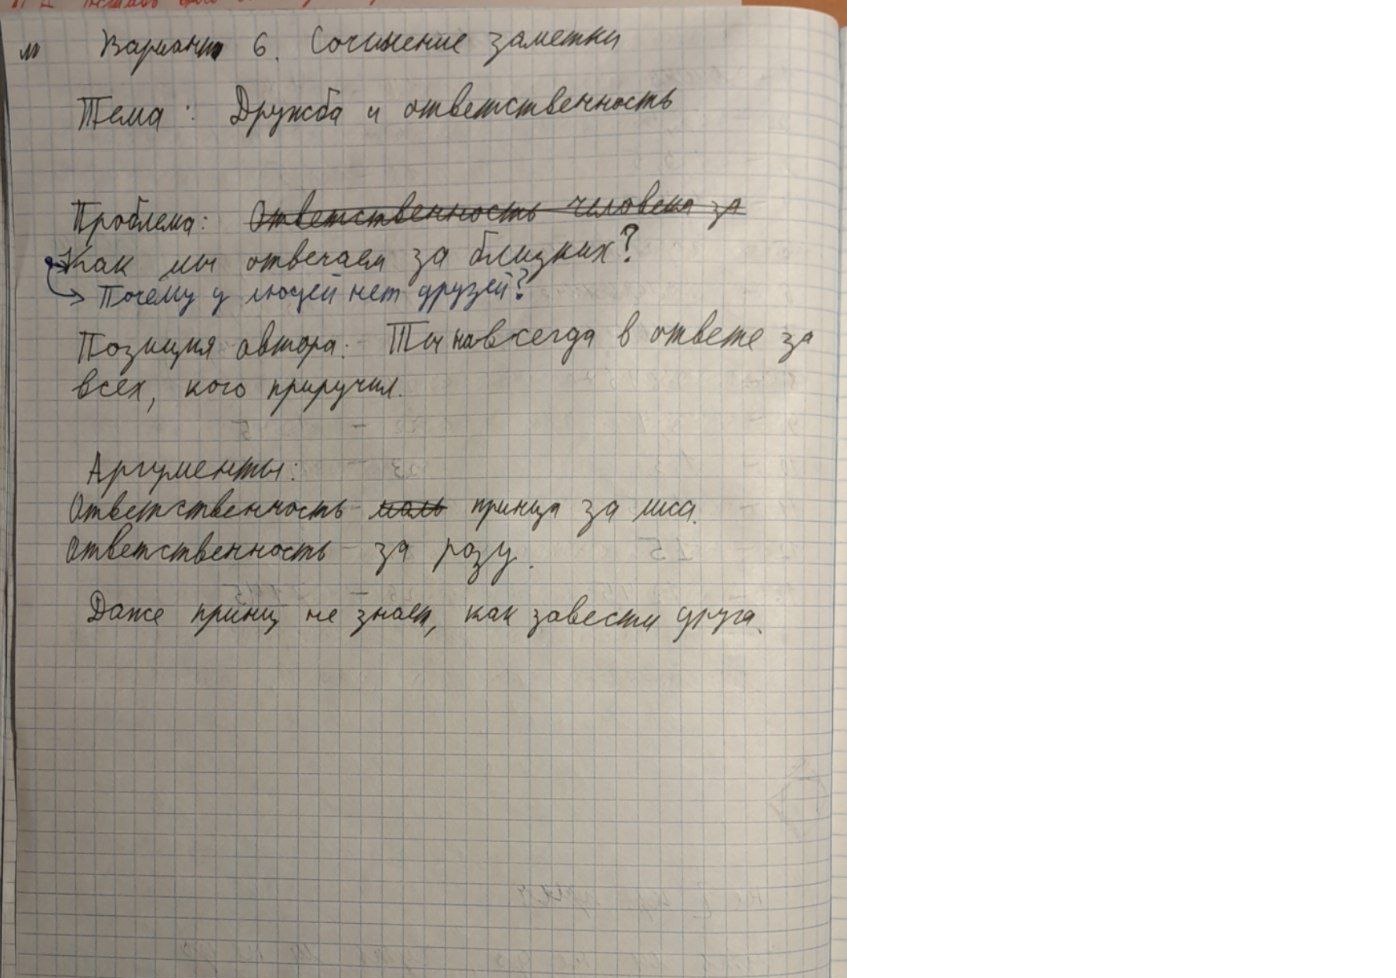 Вариант 6. Сочинение заметки
Тема: Дружба и ответственность
Проблема: Ответственность человека за
Как мы отвечаем за близких?
Почему у людей нет друзей?
Позиция автора: Ты навсегда в ответе за
всех, кого приручил.
Аргументы:
Ответственность принца за лиса.
Ответственность за розу.
Даже принц не знает, как завести друга.